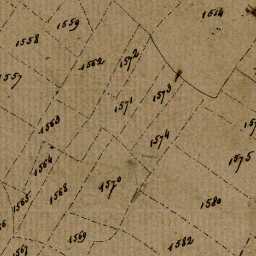 1559
1514
1558
1562
1572
1557
1571
1573
1563
1574
1564
1575
1565
1568
1570
1580
1569
1582